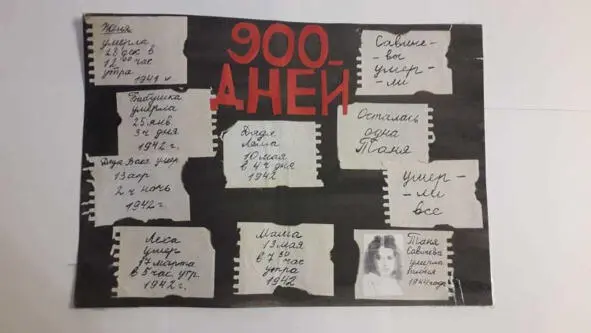 900
ДНЕЙ
Женя
умерла
28 дек в
12⁰⁰ час
утра
1941 г
Савиче-
вы
умер-
ли
Бабушка
умерла
25 янв
3 ч дня
1942 г.
Дядя
Лёша
10 мая
в 4 ч дня
1942
Осталась
одна
Таня
Дядя Вася умер
13 апр
2 ч ночь
1942 г
умер-
ли
все
Лека
умер
17 марта
в 5 час. утр.
1942 г.
Мама
13 мая
в 7³⁰ час
утра
1942
Таня
Савичева
умерла
1944 года